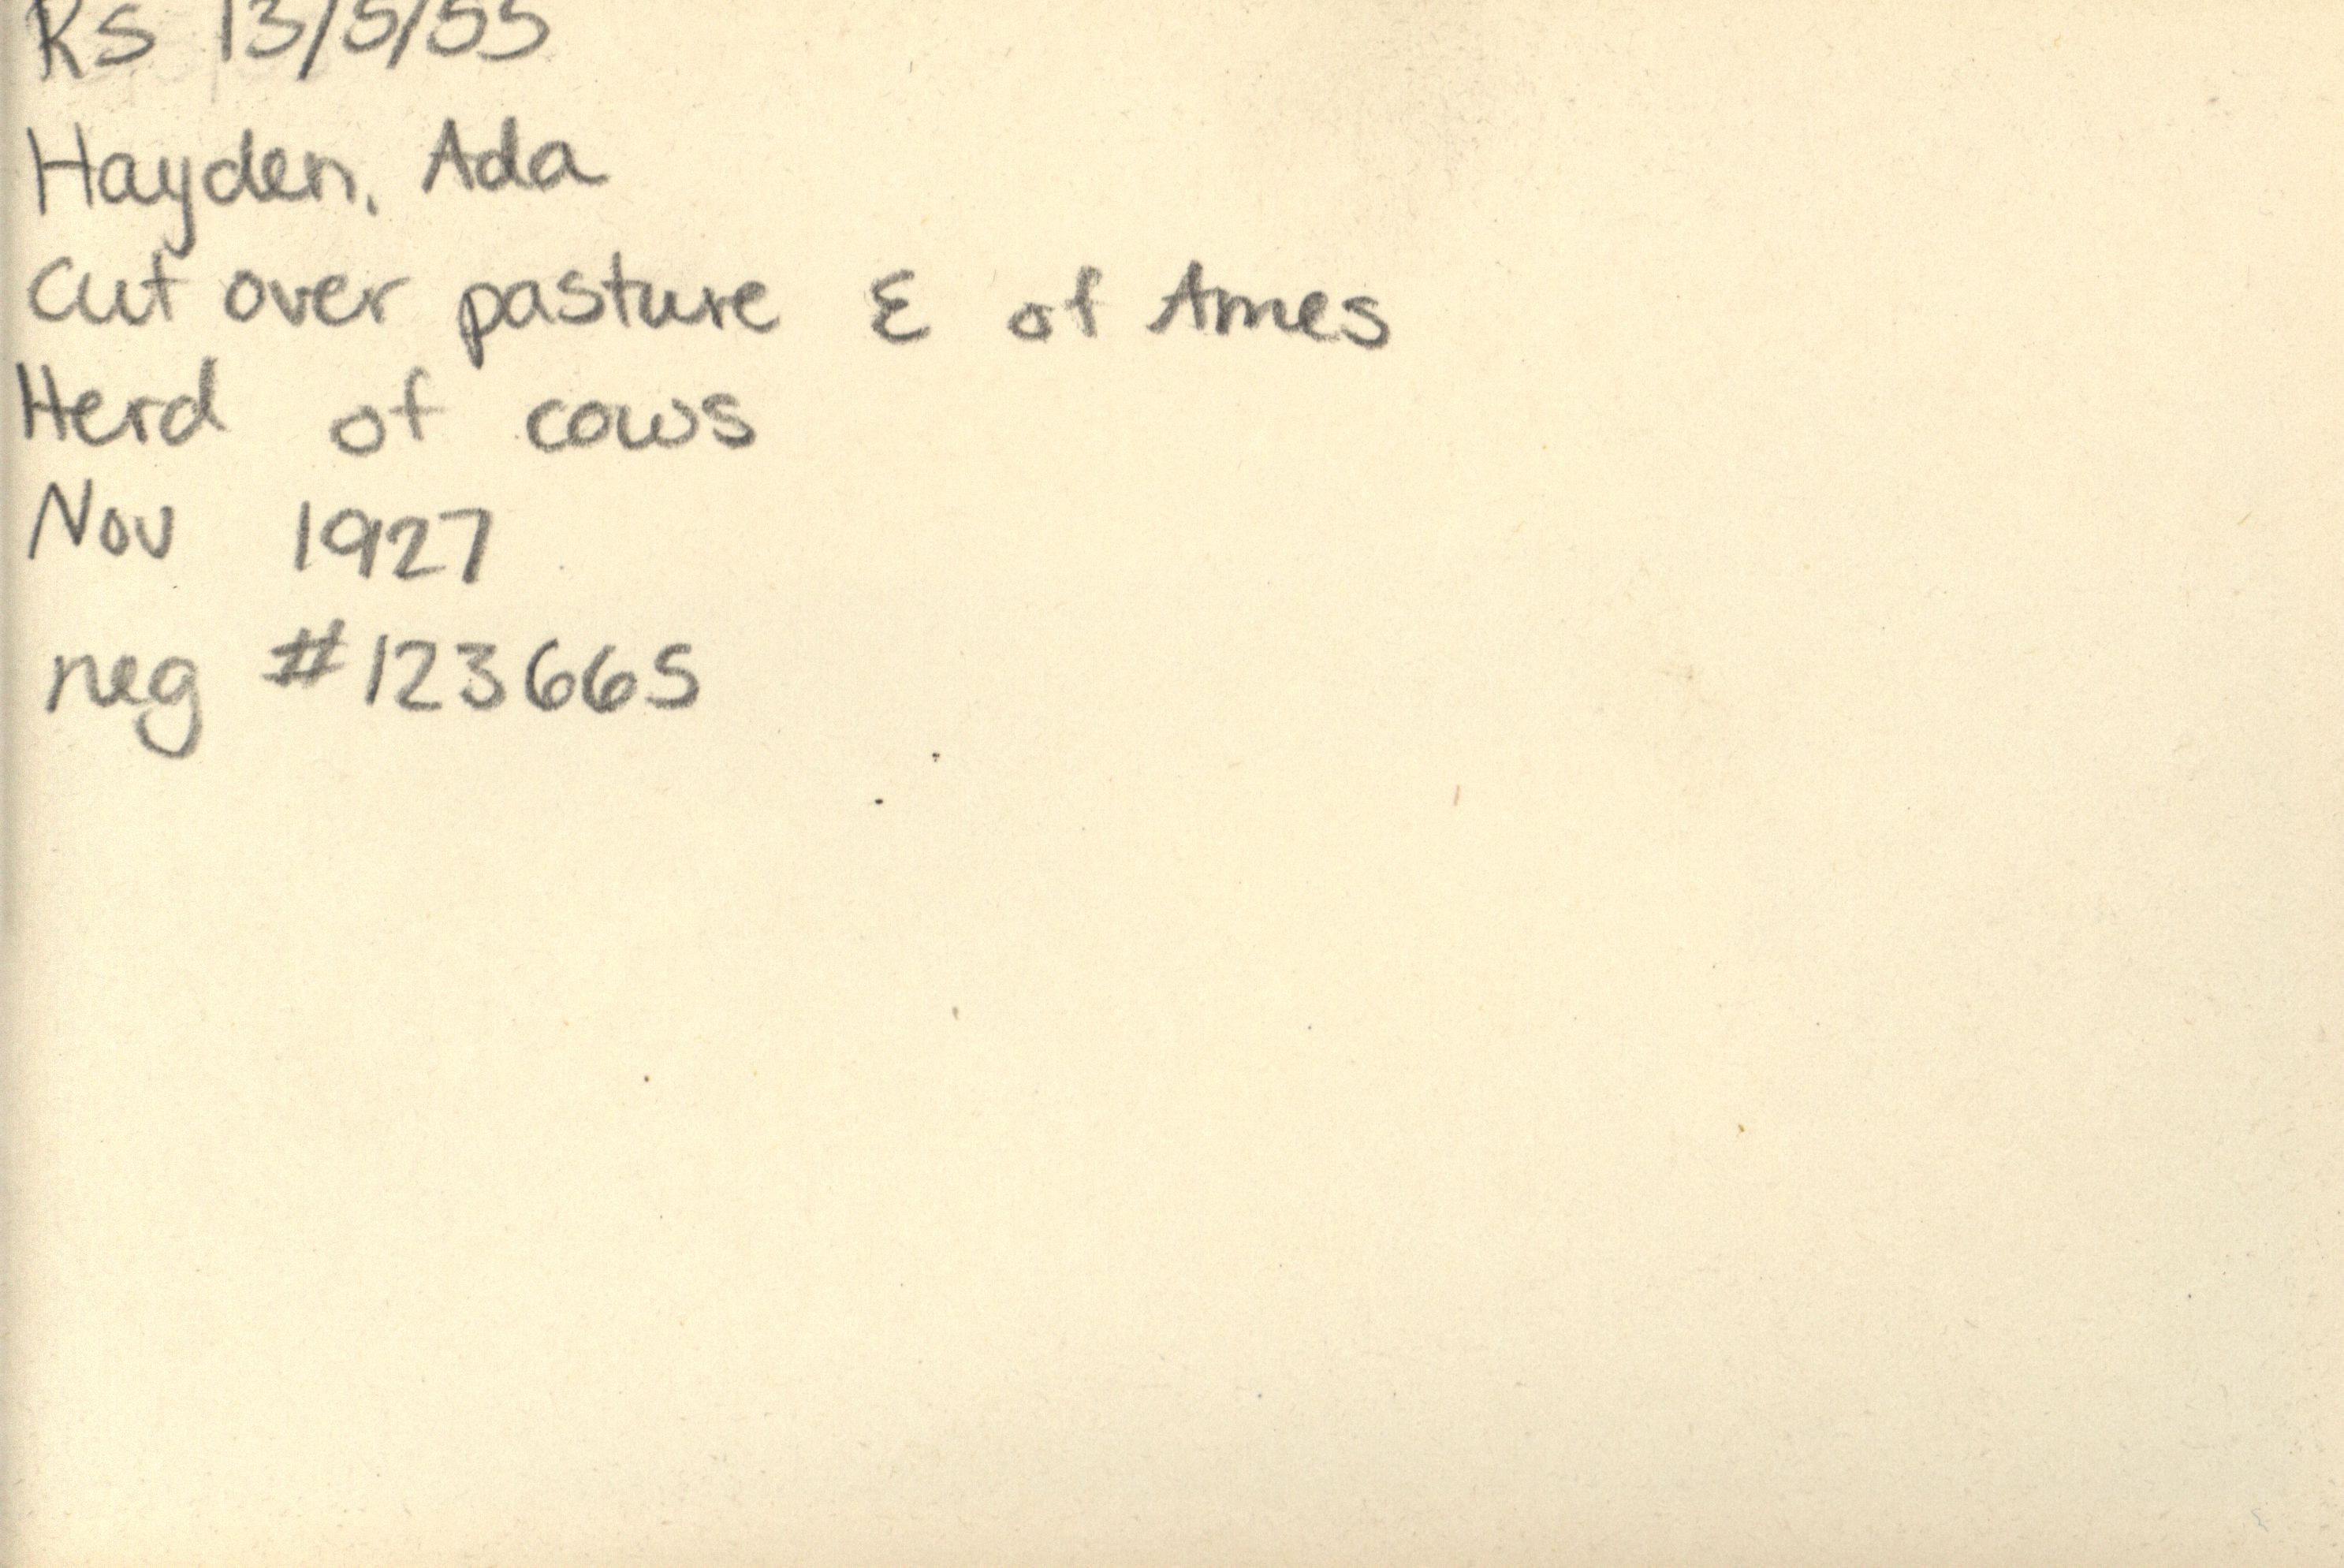 RS 13/5/55
Hayden, Ada
Cut over pasture E of Ames
Herd of cows
Nov 1927
neg #123665